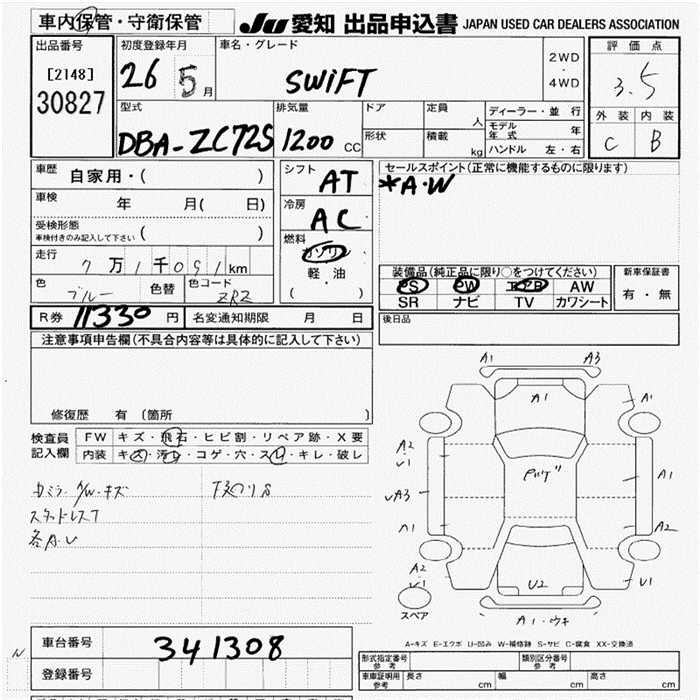 車内保管・守衛保管
JU 愛知 出品申込書 JAPAN USED CAR DEALERS ASSOCIATION
出品番号
[2148]
30827
初度登録年月
26 5月
車名・グレード
SWiFT
2WD
・
4WD
評価点
3.5
外装 内装
C B
型式
DBA-ZC72S
排気量
1200 CC
ドア
形状
定員 人
積載 kg
ディーラー・並行
モデル年式 年
ハンドル 左・右
車歴 自家用・( )
車検 年 月( 日)
受検形態
車検付きのみ記入して下さい ( )
走行 7万1千091km
色 ブルー 色替 色コード ZRZ
シフト AT
冷房 AC
燃料 ガソリン
軽・油
( )
セールスポイント(正常に機能するものに限ります)
*A・W
装備品(純正品に限り○をつけてください)
PS PW AW
SR ナビ TV カワシート
新車保証書
有・無
R券 11330円 名変通知期限 月 日
後日品
注意事項申告欄(不具合内容等は具体的に記入して下さい)
修復歴 有 〔箇所 〕
検査員記入欄
FW キズ・飛石・ヒビ割・リペア跡・X要
内装 キズ・汚れ・コゲ・穴・スレ・キレ・破レ
A/W・キズ
スタッドレス
各A・U
A1 A3
A1 A1
A2
U1
A3 A1
A1 A2
A2
U1 U2 U1
スペア
A1・ウキ
A-キズ E-エクボ U-凹み W-補修跡 S-サビ C-腐食 XX-交換済
N
車台番号 341308
登録番号
形式指定番号
参考
類別区分番号
参考
車庫証明用
参考
長さ cm 幅 cm 高さ cm